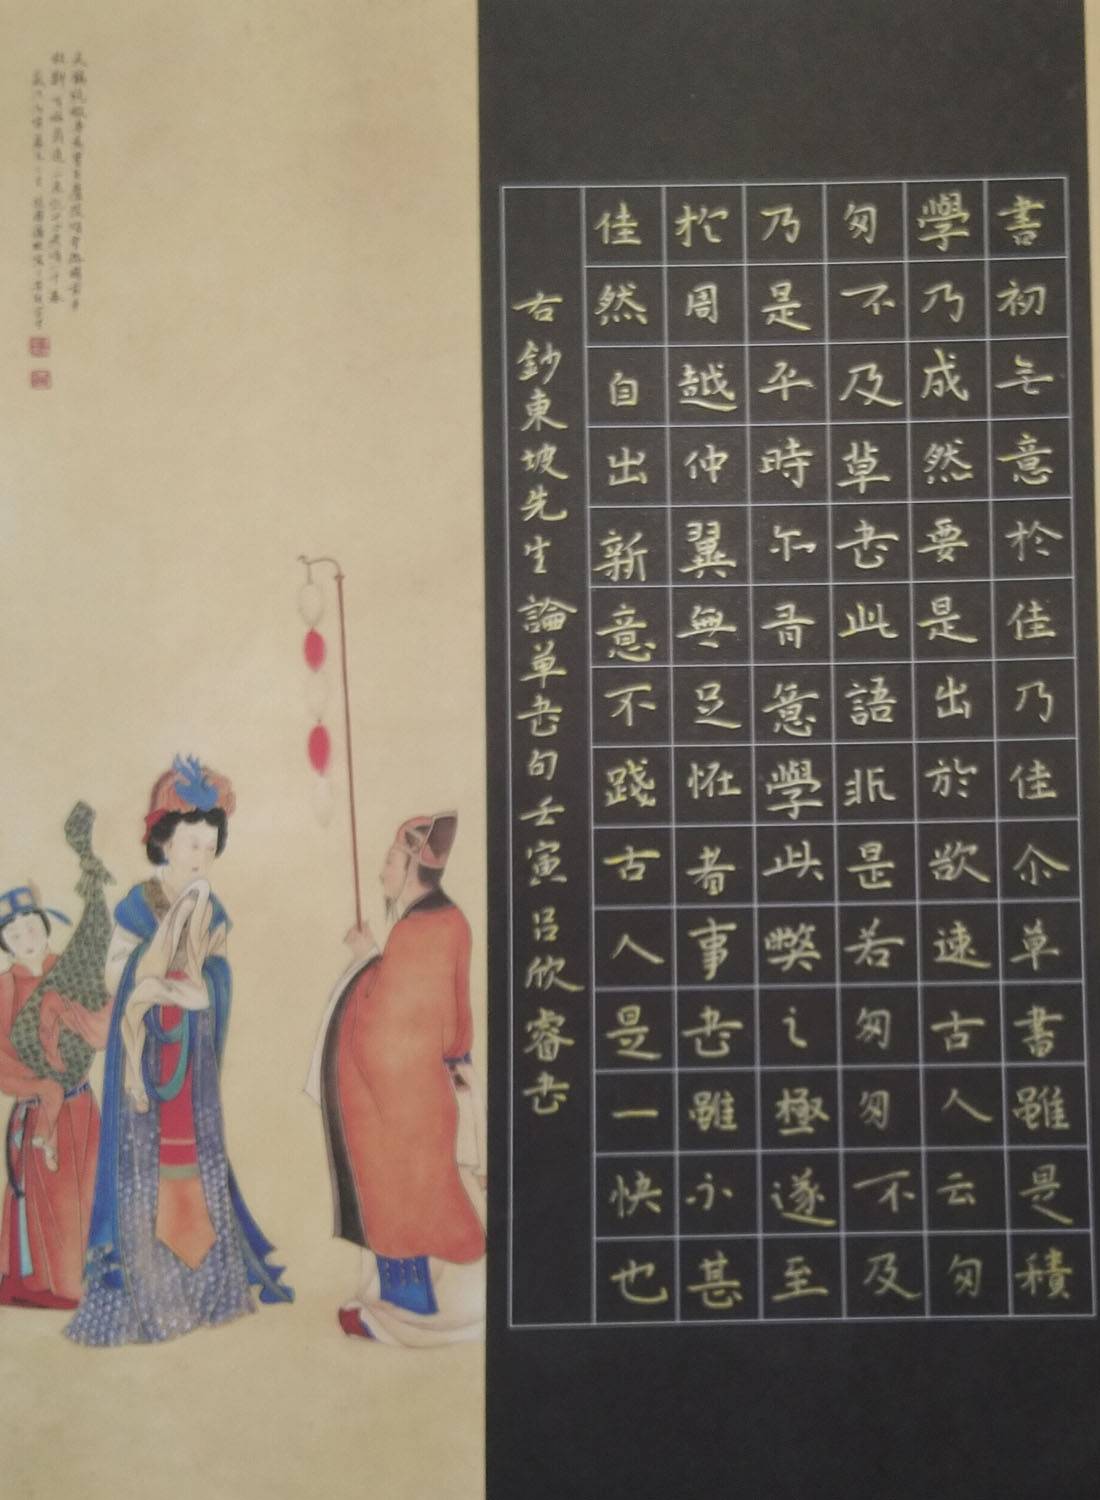 書初无意於佳乃佳尒草書雖是積
學乃成然要是出於欲速古人云匆
匆不及草書此語非是若匆匆不及
乃是平時亦有意學此弊之極遂至
於周越仲翼無足怪者事書雖亦甚
佳然自出新意不踐古人是一快也
右鈔東坡先生論草書句壬寅呂欣睿書